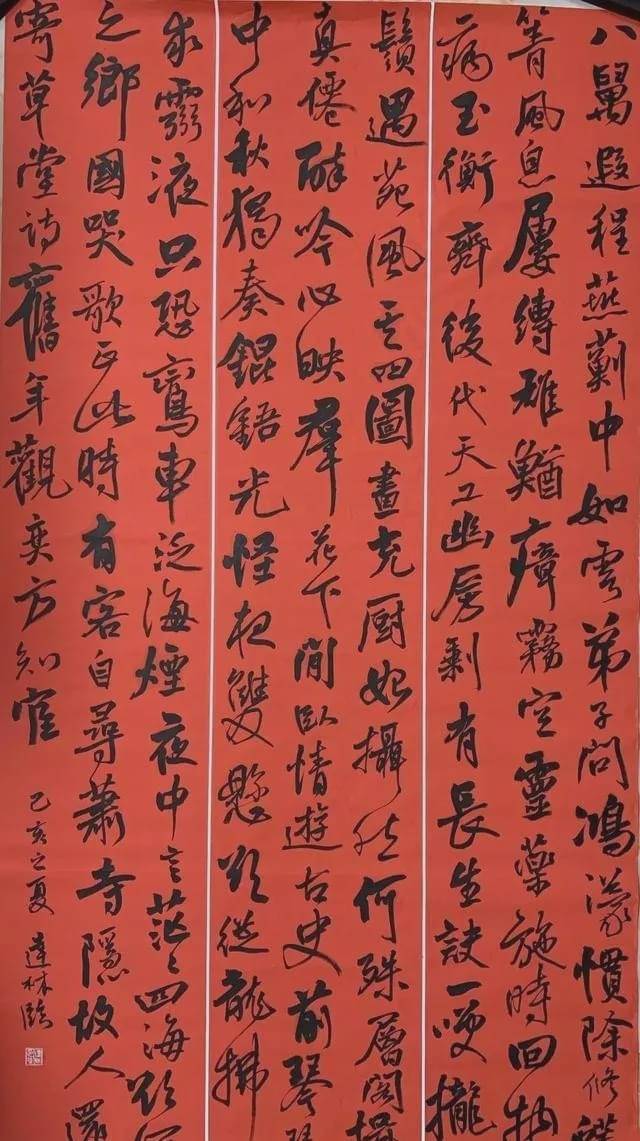 八遐程燕薊中如雲弟子問鴻濛慣除修
箐風息屢縛雄鰌瘴霧空靈藥施時回
病玉衡齊後代天工幽房剩有長生訣一嘯攏
鬚遇苑風其四圖畫充厨攝何殊層閣
真僊醉吟心映群花下閒臥情遊古史前琴
中和秋獨奏錕鋙光怪夜雙懸欲從龍拂
求霛液只恐鸞車泛海煙夜中言茫茫四海欲何
之鄉國哭歌正此時有客自尋蕭寺隱故人還
寄草堂詩舊年觀奕方知
己亥之夏 達林臨